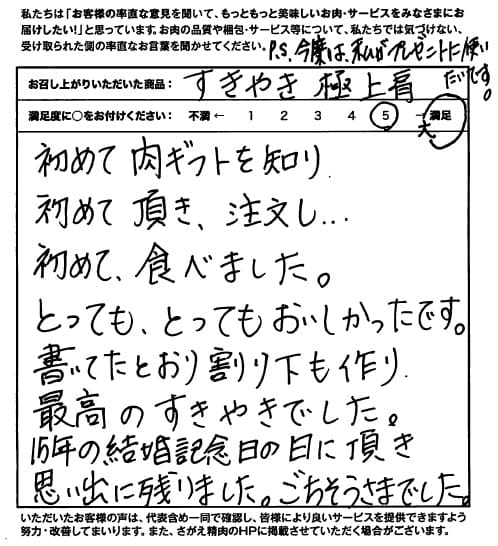 私たちは「お客様の率直な意見を聞いて、もっともっと美味しいお肉・サービスをみなさまにお
届けしたい！」と思っています。お肉の品質や梱包・サービス等について、私たちでは気づけない、
受け取られた側の率直なお言葉を聞かせてください。
P.S. 今度は、私がプレゼントに使い
たいです。
お召し上がりいただいた商品： すきやき 極上肩
満足度に○をお付けください： 不満 ← 1 2 3 4 5 → 満足
大
初めて 肉ギフトを知り
初めて 頂き、注文し...
初めて、食べました。
とっても、とってもおいしかったです。
書いてたとおり割り下も作り
最高のすきやきでした。
15年の結婚記念日の日に頂き
思い出に残りました。ごちそうさまでした。
いただいたお客様の声は、代表含め一同で確認し、皆様により良いサービスを提供できますよう
努力・改善してまいります。また、さがえ精肉のHPに掲載させていただく場合がございます。